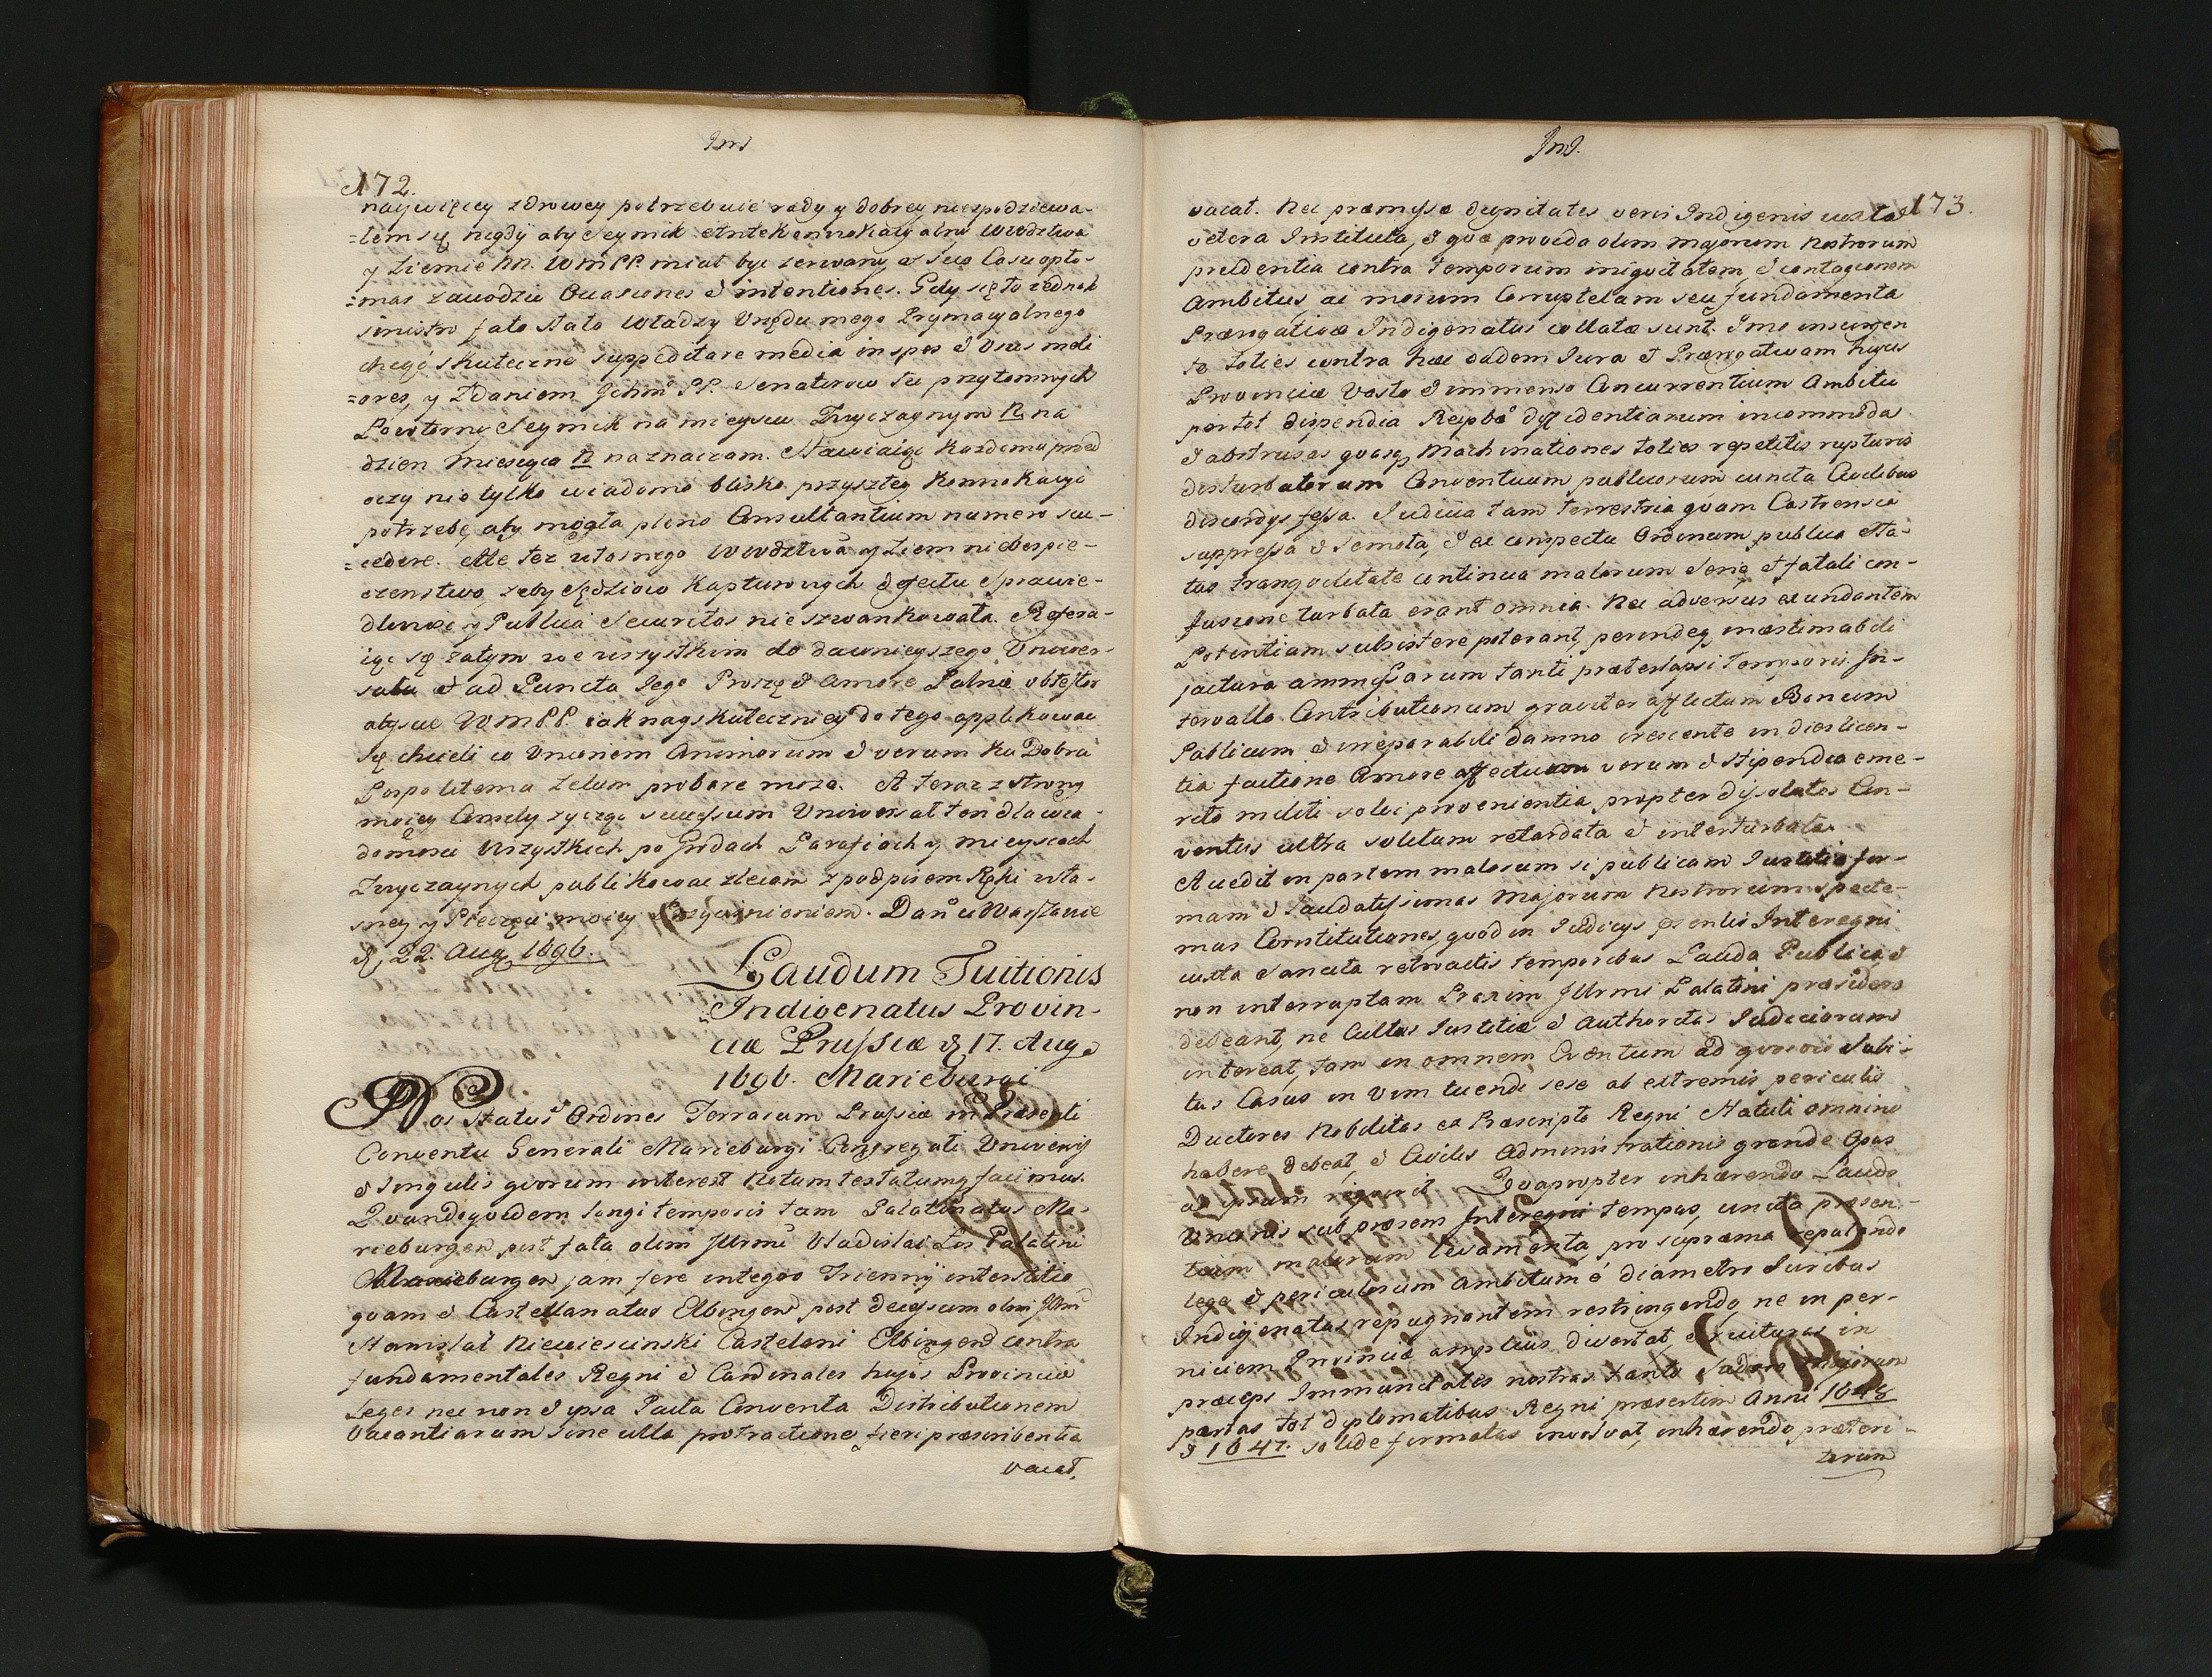 Ind
172.
naywięcey zdrowey potrzebuie rady y dobrey niespodziewa-
=łem się nigdy aby Seymik Antekonwokacyalny Wwdztwa
y Ziemie NN. WMPP. miał byc zerwany et suo Casu opta-
=mas zawodzic Ouasiones & intentiones. Gdy się to iednak
sinistro fato stało Władzy Vrzędu mego Prymacyalnego
chcąc skuteczne suppeditare media in spes & Vsus meli
=ores, y Zdaniem Ichm PP. Senatorow tu przytomnych
Powtorny Seymik na mieyscu Zwyczaynym N na
dzien Miesiąca N naznaczam. Stawiaiąc kozdemu przed
oczy nie tylko wiadomo blisko przyszłey Konwokacyi
potrzebę, aby mogła pleno Consultantium numero suc-
=cedere. Ale tez własnego Wwdztwa y Ziem niebespie-
czenstwo, zeby Sędziow Kapturowych defectu Sprawie-
dliwosc y Publica Securitas nie szwankowała. Refera-
iąc się zatym we wszystkim do dawnieyszego Vniwer-
sału & ad Puncta Iego Proszę & amore Patriæ obtestor
abyscie WMPP. iak nayskuteczniey do tego applikowac
się chcieli co Vnionem Animorum & verum ku Dobru
Pospolitemu Zelum probare moze. A teraz z strony
moiey Consily zycząc successum Vniwersał ten dla wia-
domosci Wszystkich po Grodach Parafiach y mieyscach
Zwyczaynych publikowac zlecam z podpisem Ręki wła-
sney y Pieczęci moiey Przycisnieniem. Dan w Warszawie
d, 22. Aug, 1696.
Laudum Tuitionis
Indigenatus Provin-
ciæ Prussiæ d, 17. Aug.
1696. Marieburgi
Nos Status & Ordines Terrarum Prussiæ in Præsenti
Conventu Generali Marieburgi Congregati Vniversis
& Singulis quorum interest Notum testatumq, facimus.
Quandoquidem longi temporis tam Palatinatus Ma-
rieburgen post fata olim Illrmi Vladislai Łos Palatini
Marieburgen, jam fere integro Triennij interstitio
quam & Castellanatus Elbingen post decessum olim Illmi
Stanislai Niewiescinski Castelani Elbingen contra
fundamentales Regni & Cardinales hujus Provinciæ
Leges nec non & ipsa Pacta Conventa Distributionem
Vacantiarum sine ulla protractione fieri præscribentia
vacat,
Ind.
173.
vacat. Nec præmissæ dignitates veris Indigenis iuxta
vetera Instituta, & quæ provida olim Majorum Nostrorum
prudentia contra temporum iniquitatem, & contagionem
Ambitus, ac morum Corruptelam seu fundamenta
Prærogativæ Indigenatus collatæ sunt. Imo insurgen
te toties contra hæc eadem Iura & Prærogativam hujus
Provinciæ Vasto & immenso Concurrentium Ambitu
per tot dispendia Reipbæ dissidentiarum incommoda
& abstrusas quasq, Machinationes toties repetitis rupturis
disturbatorum Conventuum publicorum cuncta Civilibus
discordijs fessa. Iudicia tam terrestria quam Castrensia
suppressa & Semota, & ex conspectu Ordinum publica Sta-
tus tranquilitate continua malorum Serie, & fatali con-
fusione turbata erant omnia. Nec adversus exundantem
Potentiam subsistere poterant, perindeq, inæstimabili
jactura ammissarum tanti præterlapsi Temporis In-
tervallo Contributionum graviter afflictum Bonum
Publicum & irreparabili damno crescente in dies licen-
tia factione Amore affectuum verum & Stipendia eme-
rito militi solvi provenientia propter dissolutos Con-
ventus ultra solitum retardata & interturbata.
Accedit in partem malorum si publicam Iustitiæ for-
mam & laudatissimas Majorum Nostrorum specte-
mus Constitutiones, quod in Iudicijs præsentis Interegni
iuxta Sancita retroactis temporibus Lauda Publica &
non interruptam Praxim Illrmi Palatini præsidere
debeant, ne Cultus Iustitiæ & Authoritas Iudiciorum
intereat, tam in omnem Eventum ad quosvis Subi-
tus Casus in Vim tuendi sese ab extremis periculis
Ductores Nobilitas ex Præscripto Regni Statuti omnino
habere debeat, & Civilis Administrationis grande Opus
id ipsum requirit Quapropter inhærendo Laudo
Vnionis sub præsens Interegni tempus, uncta præsen-
tium malorum levamenta, pro suprema reputando
lege & periculosum ambitum è diametro Iuribus
Indigenatus repugnantem restringendo, ne in per-
niciem Provinciæ amplius divertat, & ruituras in
præceps Immunitates nostras tanto Sudore Majorum
partas tot diplomatibus Regni præsertim Anni 1648
& 1647. solide firmatas involvat, inhærendo præteri-
terum